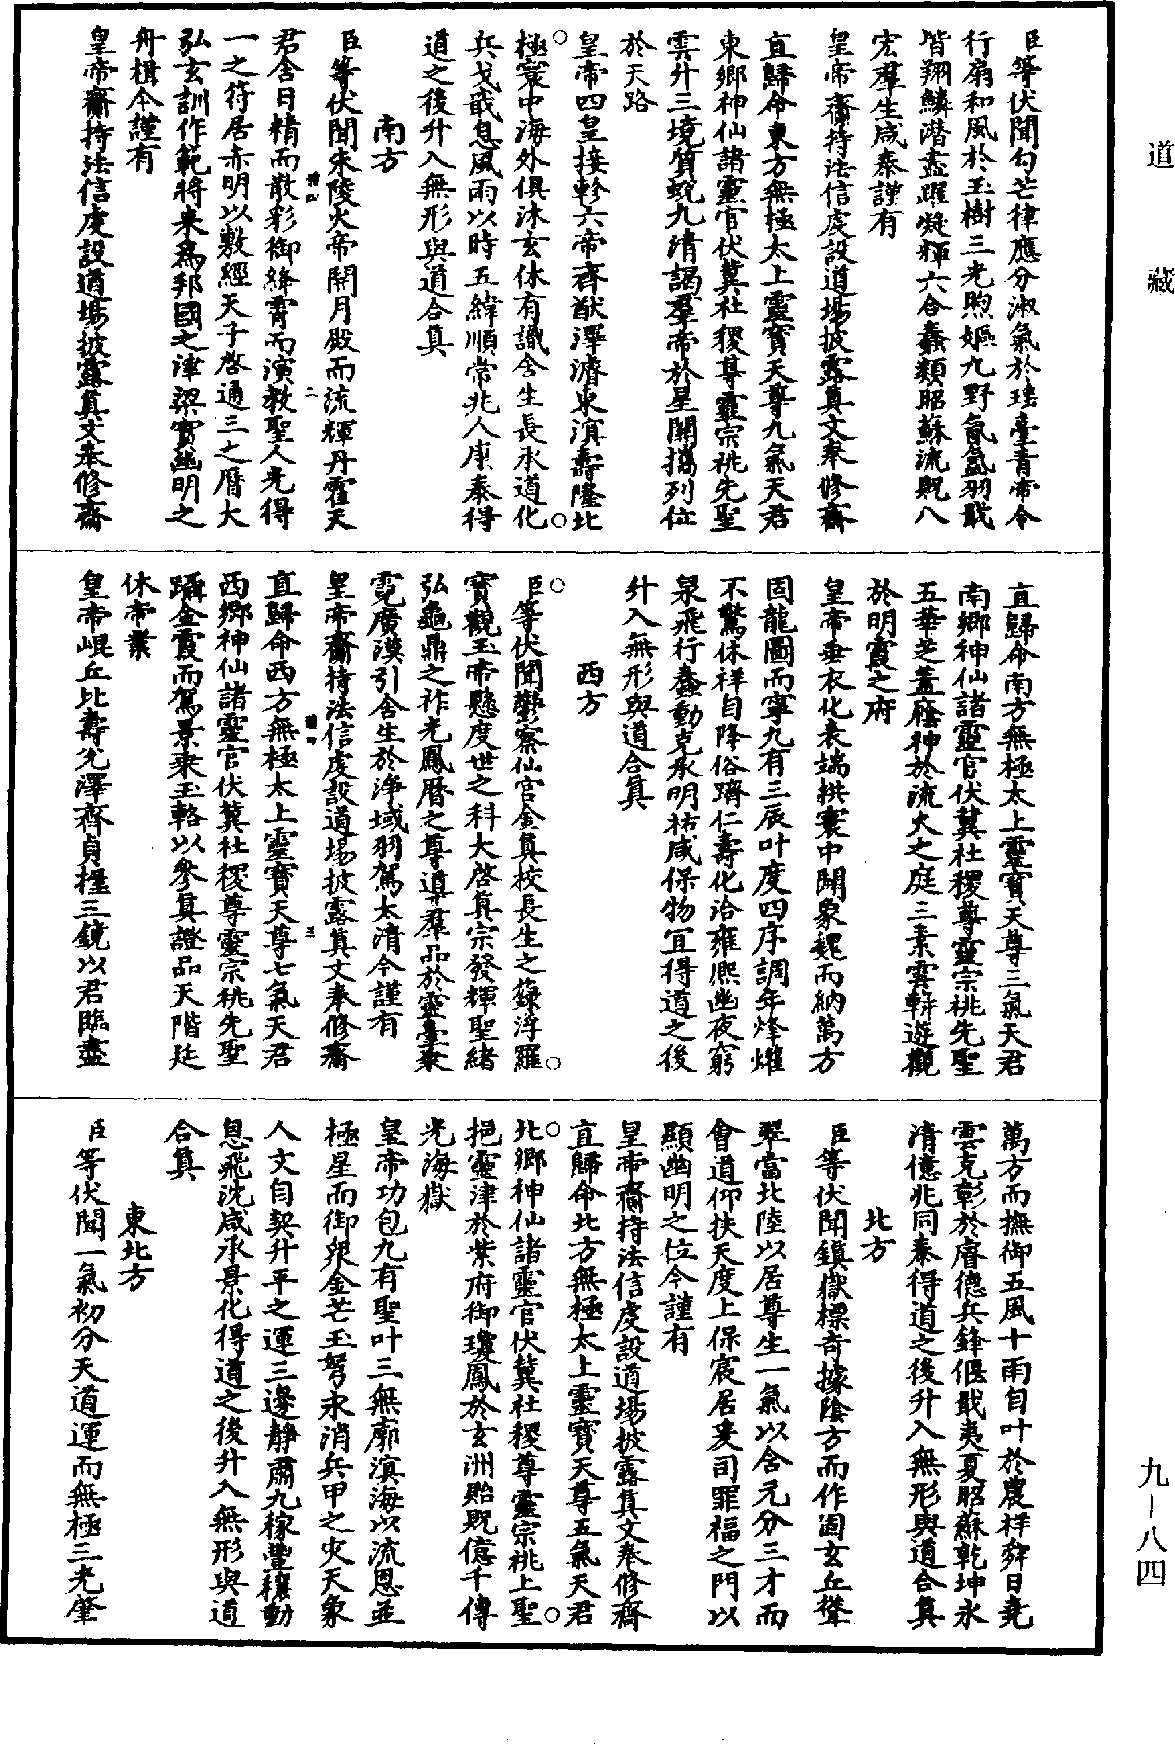 道藏
臣等伏聞勾芒律應分淑氣於瑤臺青帝令
行扇和風於玉樹三光煦嫗九野氤氳羽戢
皆翔鱗潛盡躍凝輝六合蠢類昭蘇流貺八
宏羣生咸泰謹有
皇帝齋持法信虔設道場披露真文奉修齋
直歸命東方無極太上靈寶天尊九氣天君
東鄉神仙諸靈官伏冀社稷尊靈宗祧先聖
雲升三境質蛻九清謁羣帝於星關攜列位
於天路
皇帝四皇接軫六帝齊猷澤濟東溟壽隆北
極寰中海外俱沐玄休有識含生長承道化
兵戈戢息風雨以時五緯順常兆人康泰得
道之後升入無形與道合真
南方
臣等伏聞朱陵火帝開月殿而流輝丹霍天
君含日精而散彩御絳霄而演教聖人光得
一之符居赤明以敷經天子啓通三之曆大
弘玄訓作範將來為邦國之津梁實幽明之
舟檝今謹有
皇帝齋持法信虔設道場披露真文奉修齋
直歸命南方無極太上靈寶天尊三氣天君
南鄉神仙諸靈官伏冀社稷尊靈宗祧先聖
五華芝蓋蔭神於流火之庭三素雲輧遊觀
於明霞之府
皇帝垂衣化表端拱寰中闢象魏而納萬方
固龍圖而寧九有三辰叶度四序調年烽燧
不驚休祥自降俗躋仁壽化洽雍熙幽夜窮
泉飛行蠢動克承明祐咸保物宜得道之後
升入無形與道合真
西方
臣等伏聞鬱察仙宮金真校長生之籙浮羅
寶觀玉帝懸度世之科大啓真宗發輝聖緒
弘龜鼎之祚光鳳曆之尊導羣品於靈臺乘
霓廣漠引含生於淨域羽駕太清今謹有
皇帝齋持法信虔設道場披露真文奉修齋
直歸命西方無極太上靈寶天尊七氣天君
西鄉神仙諸靈官伏冀社稷尊靈宗祧先聖
躡金霞而駕景乘玉輅以參真證品天階延
休帝業
皇帝崐丘比壽光澤齊貞握三鏡以君臨盡
萬方而撫御五風十雨自叶於農祥舜日堯
雲克彰於睿德兵鋒偃戢夷夏昭蘇乾坤永
清億兆同泰得道之後升入無形與道合真
北方
臣等伏聞鎮嶽標奇據陰方而作固玄丘聳
翠當北陸以居尊生一氣以含元分三才而
會道仰扶天度上保宸居爰司罪福之門以
顯幽明之位今謹有
皇帝齋持法信虔設道場披露真文奉修齋
直歸命北方無極太上靈寶天尊五氣天君
北鄉神仙諸靈官伏冀社稷尊靈宗祧上聖
挹靈津於紫府御瓊鳳於玄洲貽貺億千傳
光海嶽
皇帝功包九有聖叶三無廓溟海以流恩並
極星而御衆金芒玉弩永消兵甲之災天象
人文自契升平之運三邊靜肅九稼豐穰動
息飛沈咸承景化得道之後升入無形與道
合真
東北方
臣等伏聞一氣初分天道運而無極三光肇
九－八四